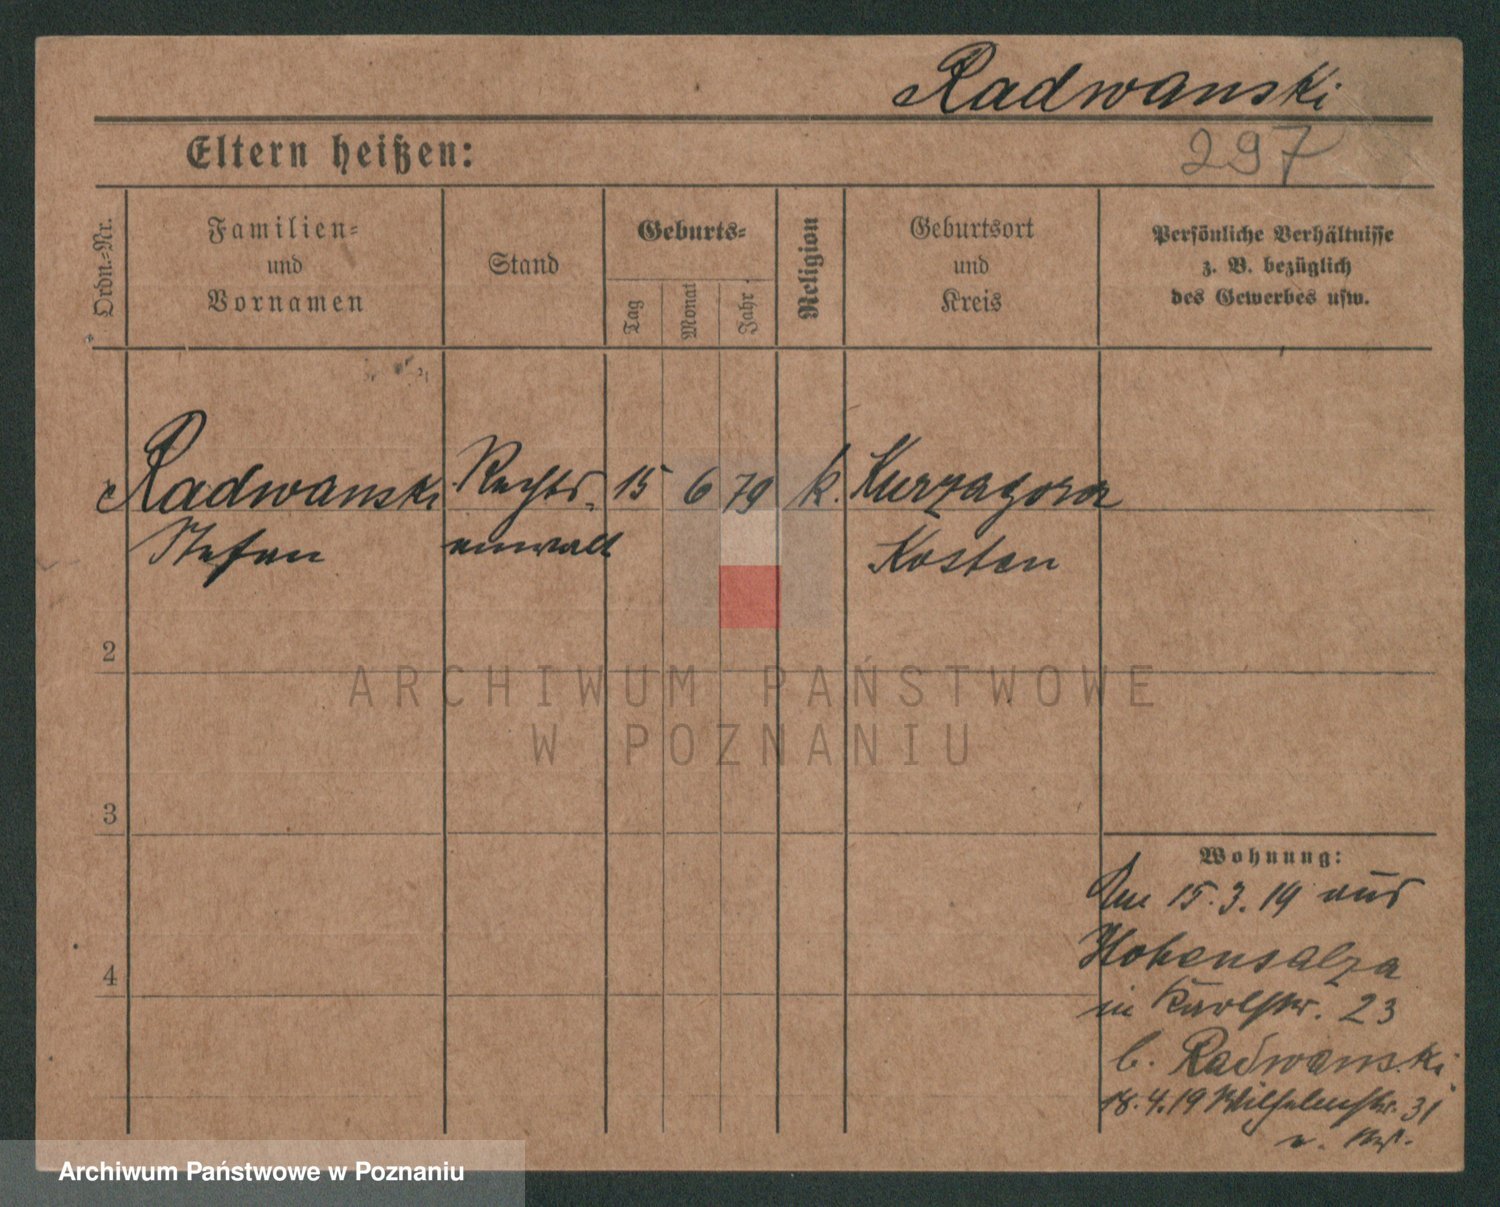 Radwanski
297
Eltern heißen:
Ordn.-Nr.
Familien-
und
Vornamen
Stand
Geburts-
Tag
Monat
Jahr
Religion
Geburtsort
und
Kreis
Persönliche Verhältnisse
z. B. bezüglich
des Gewerbes usw.
Radwanski Rechts- 15 6 79 k. Kurzagora
Stefan anwalt Kosten
2
ARCHIWUM PAŃSTWOWE
W POZNANIU
3
Wohnung:
Am 15.3.19 aus
Hohensalza
4
in Karlstr. 23
b. Radwanski
18.4.19 Wilhelmstr. 31
Archiwum Państwowe w Poznaniu